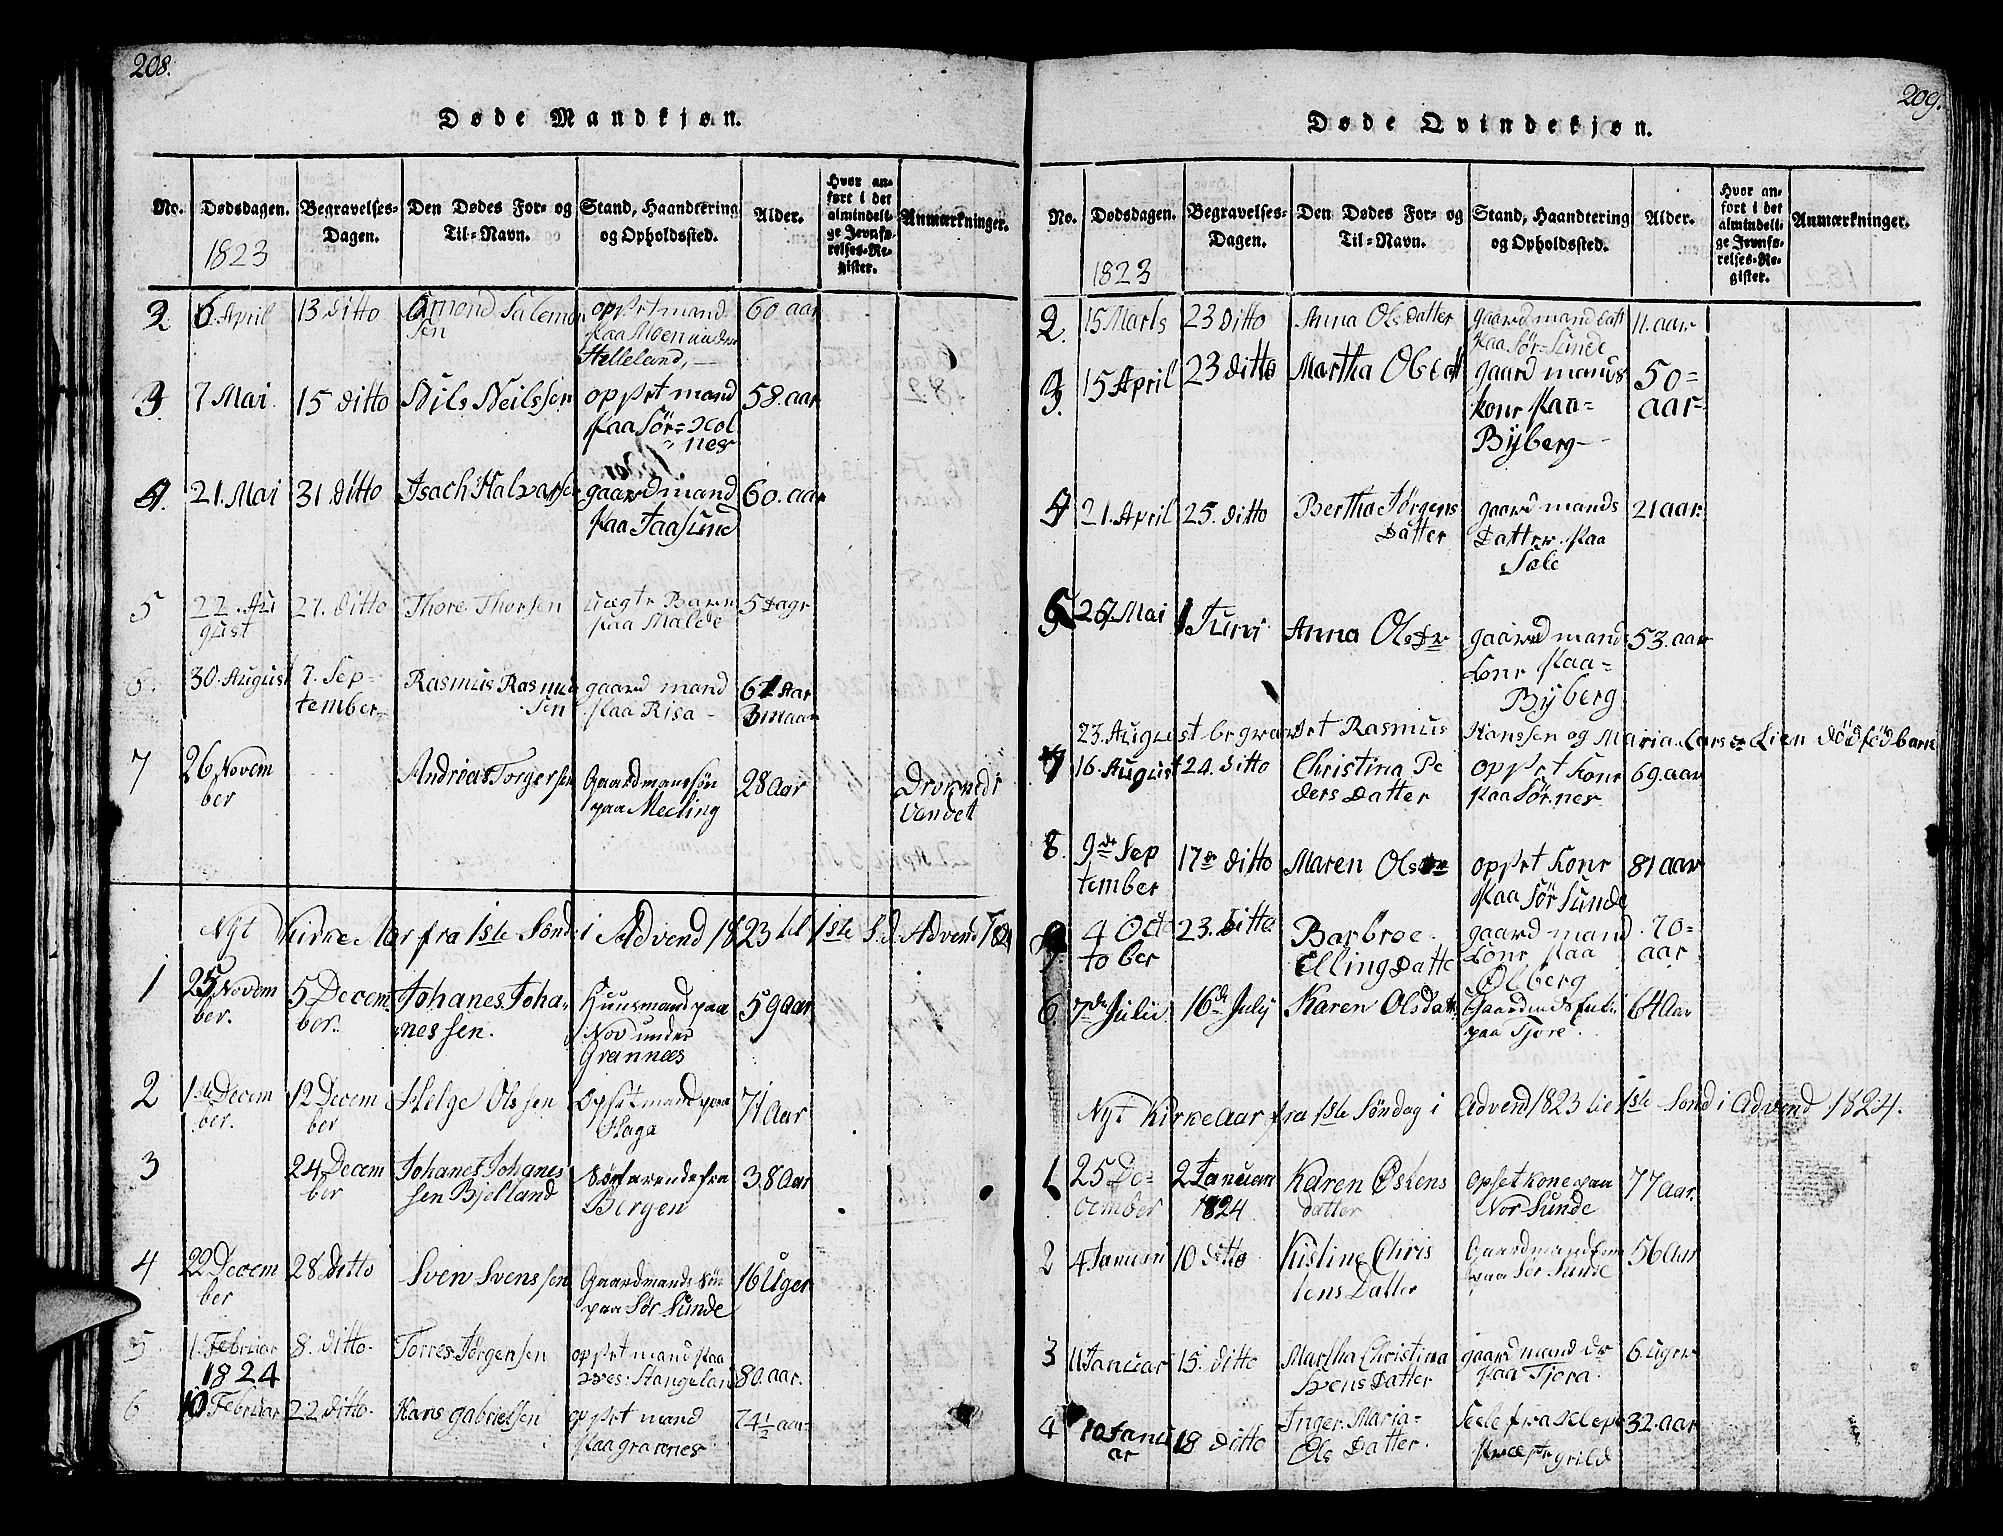 208.
Døde Mandkjøn.
No. Dødsdagen. 1823 Begravelses-Dagen. Den Dødes For- og Til-Navn. Stand, Haandtering og Opholdssted. Alder. Hvor anført i det almindelige Jevnførelses-Register. Anmærkninger.
2 6 April 13 ditto Amond Salemonsen opset mand paa Moen under Helleland, 60 aar
3. 7 Mai 15 ditto Nils Neilssen opset mand paa Sör-Kolnes 58. aar
4. 21. Mai 31 ditto Isach Halvarsen gaardmand paa Jaasund 60. aar
5 22. August 27. ditto Thore Thorsen uægte Barn paa Malde 5 Dage
6. 30. August 7. September Rasmus Rasmussen gaard mand paa Risa 61 Aar 3 maan
7 26 November Andrias Torgersen Gaardmanssøn paa Mecling 28 Aar Drocnede i Vandet
Nyt Kirke Aar fra 1ste Sönd i Advend 1823 til 1ste S. d. Advend 1824
1 25 November. 5 December. Johanes Johannessen. Huusmand paa Nov under Grannæs 59 aar
2 1ste December. 12 December Helge Olssen Opset mand paa Haga 71 Aar
3 24 December Johanes Johanessen Bjelland Søefarende fra Bergen 38 Aar
4 22 December 28 Ditto Sven Svenssen Gaardmands Søn paa Sør Sunde 16 Uger
5 1. Februar 1824 8. ditto Torres Jørgensen opset mand paa Stangeland 80. aar.
6 10 Februar 22 ditto Hans Gabrielsen opset mand paa grannes 74½ aar
209.
Døde Qvindekjøn.
No. Dødsdagen. 1823 Begravelses-Dagen. Den Dødes For- og Til-Navn. Stand, Haandtering og Opholdssted. Alder. Hvor anført i det almindelige Jevnførelses-Register. Anmærkninger.
2. 15 Marts 23 ditto Anna Olsdatter gaardmand datt paa Sør-Sunde 11. aar
3. 15 April 23 ditto Martha Olsdatt gaard mands kone paa Byberg 50 aar
4 21. April 25. ditto Bertha Jørgens Datter gaard mands Datter paa Sæle 21 aar
5 26 Mai 1 Juni Anna Olsdr gaard mands kone paa Byberg 53. aar
23. August begravet Rasmus Hanssen og Maria Larsdr Lien dödfödbarn
7 16 August 24. ditto Christina Peders Datter opset kone paa Sörnes 69. aar
8 9de September 17de ditto Maren Olsdr opset kone paa Sør Sunde 81 aar
9 4 October 23. ditto Barbroe Elling Datte gaard mand kone paa Ølberg 70 aar
6. 7de Julii 16de July Karen Olsdatt paa Tjore. 64 Aar
Nyt Kirke Aar fra 1ste Søndag i Advend 1823 til 1ste Sönd i Advend 1824.
1 25 December 2 Januari 1824 Karen Østens datter opset kone paa Nor Sunde 77 Aar.
2 4 Januari 10 ditto Kistine Christens Datter paa Sør Sunde 56 Aar
3 11 Januar 15. ditto Martha Christina Svens Datter gaard mand dr paa Tjora. 6 uger
4 10 Januar 18 ditto Inger Maria Ols Datter. fra Klep 32. aar